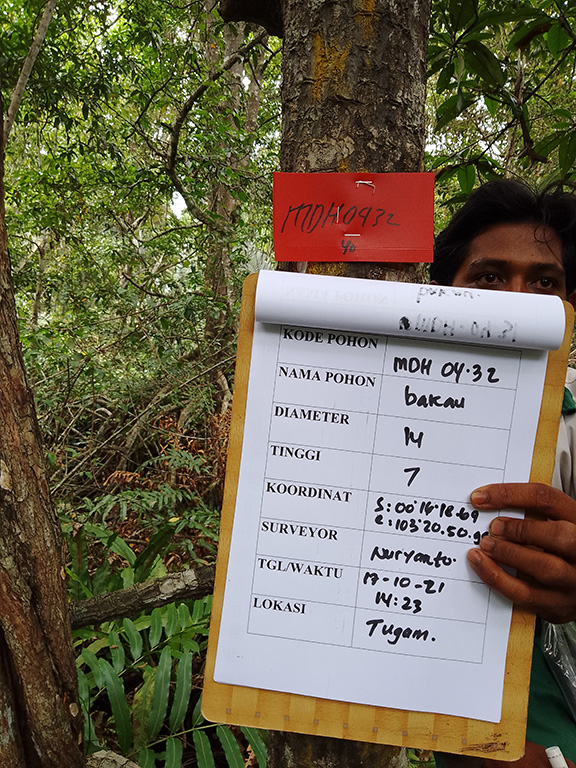 MDH 0432
40
KODE POHON MDH 04.32
NAMA POHON bakau
DIAMETER 14
TINGGI 7
KOORDINAT S: 00°16'18.69
E: 103°20.50.
SURVEYOR Nuryanto.
TGL/WAKTU 17-10-21
14:23
LOKASI Tugam.